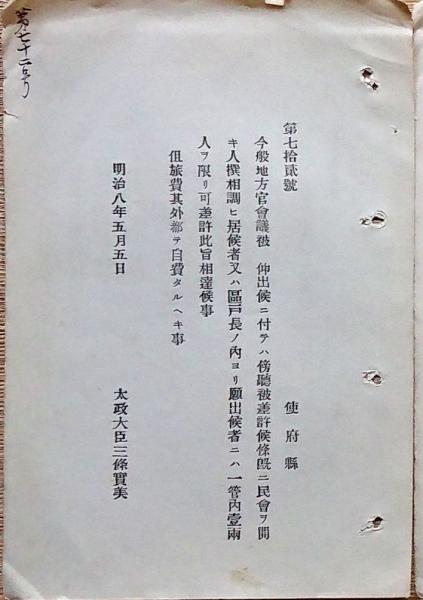 第七十二号
第七拾貳號
使府縣
今般地方官會議被　仰出候ニ付テハ傍聽被差許候條既ニ民會ヲ開
キ人撰相調ヒ居候者又ハ區戸長ノ內ヨリ願出候者ニハ一管內壹兩
人ヲ限リ可差許此旨相達候事
但旅費其外都テ自費タルヘキ事
明治八年五月五日
太政大臣三條實美